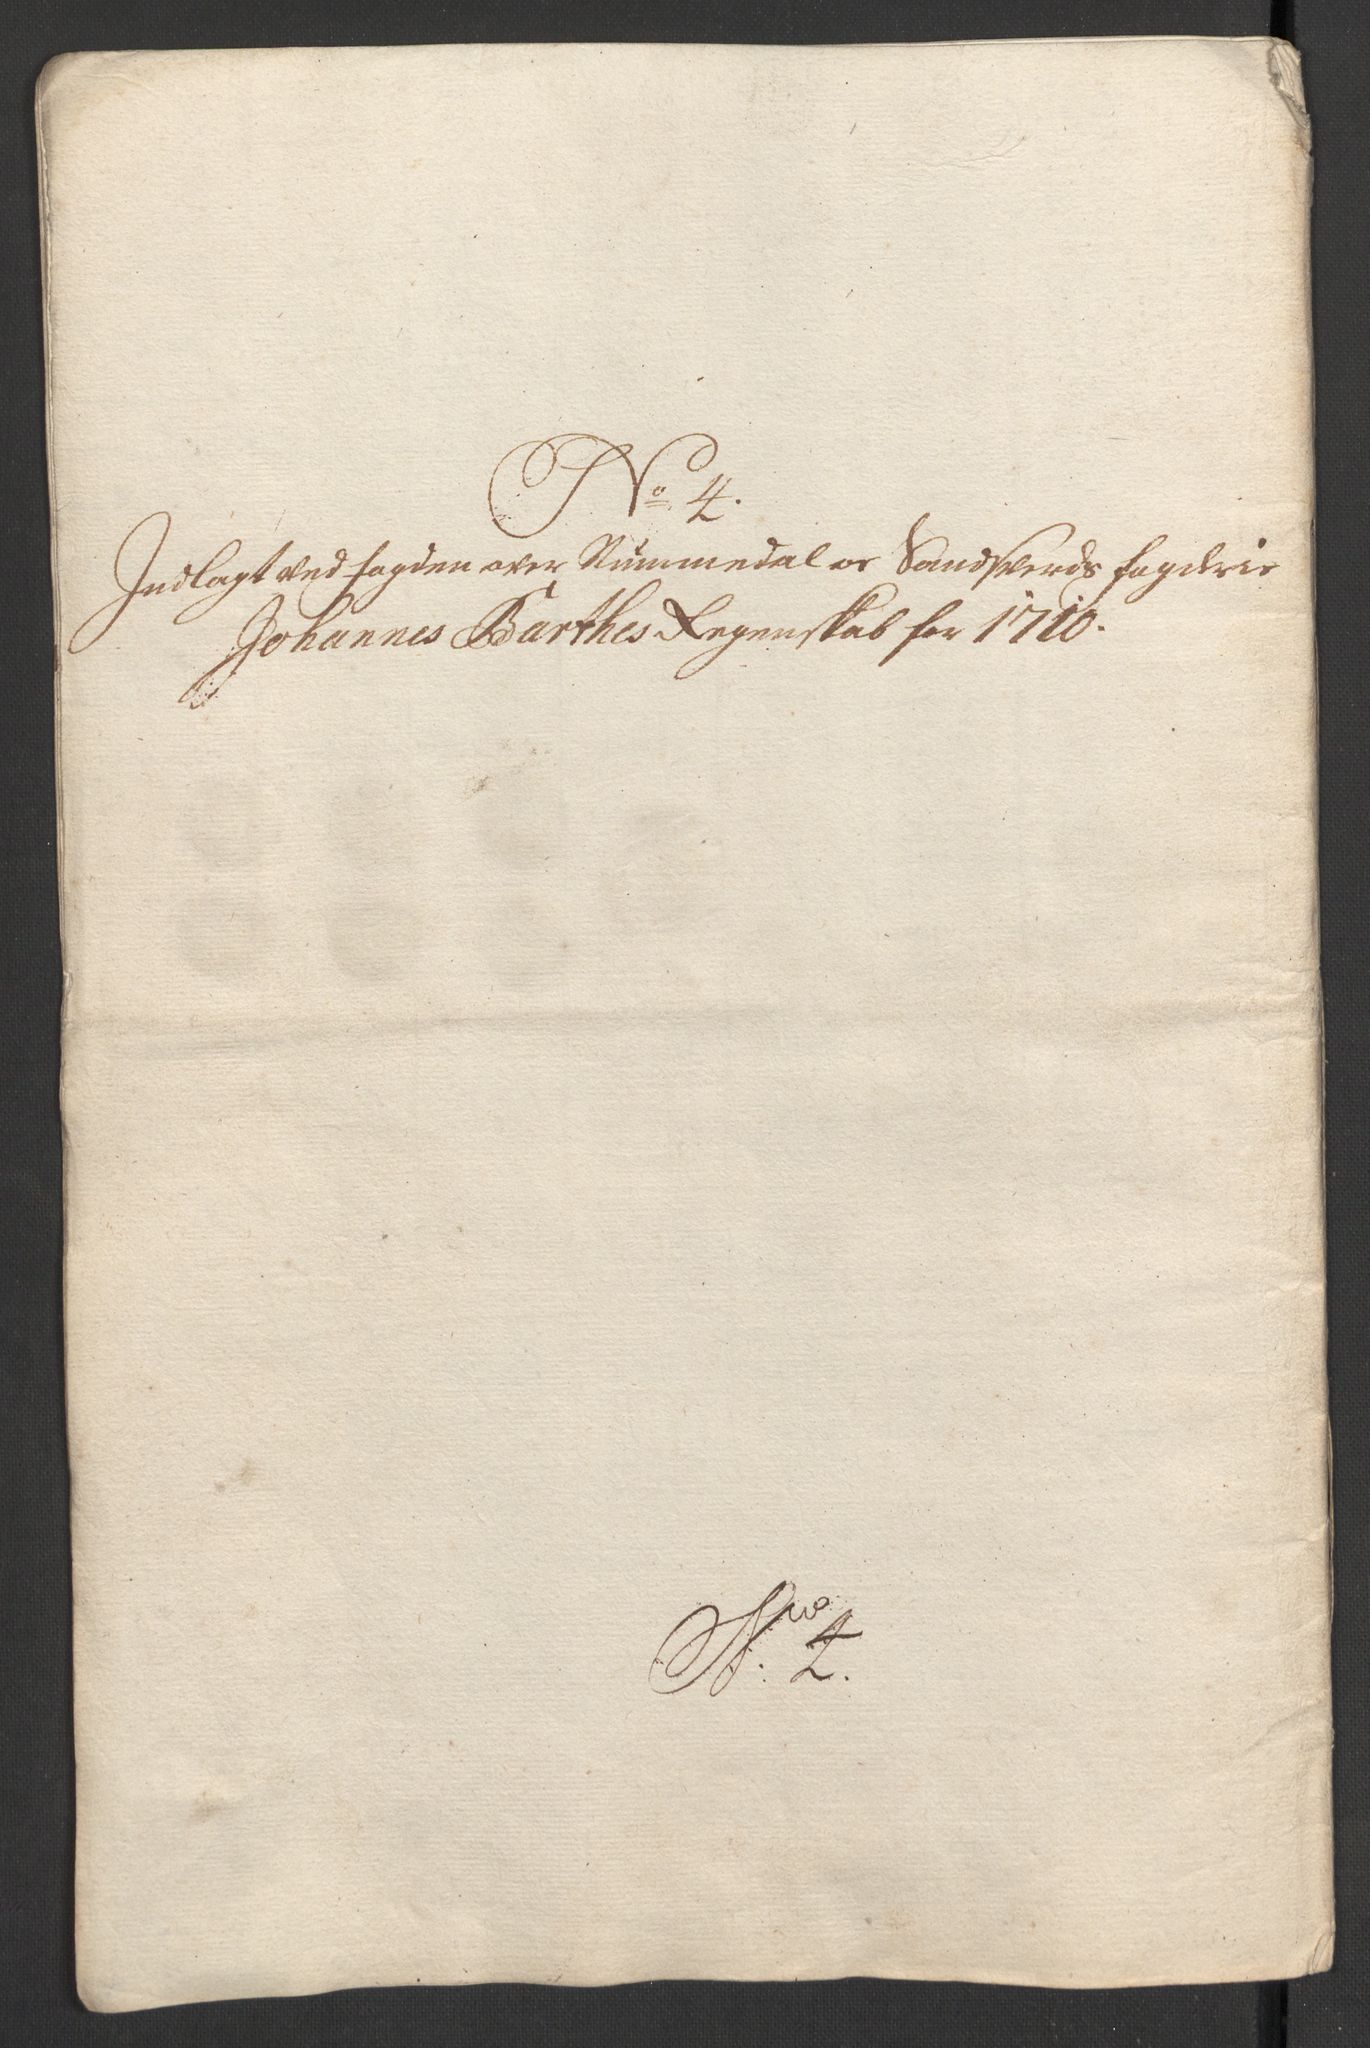 No 4.
Indlagt ved fogden over Nummedal oc Sandsverds fogderie
Johannes Barthes Regenskab for 1710.
Nro 4.